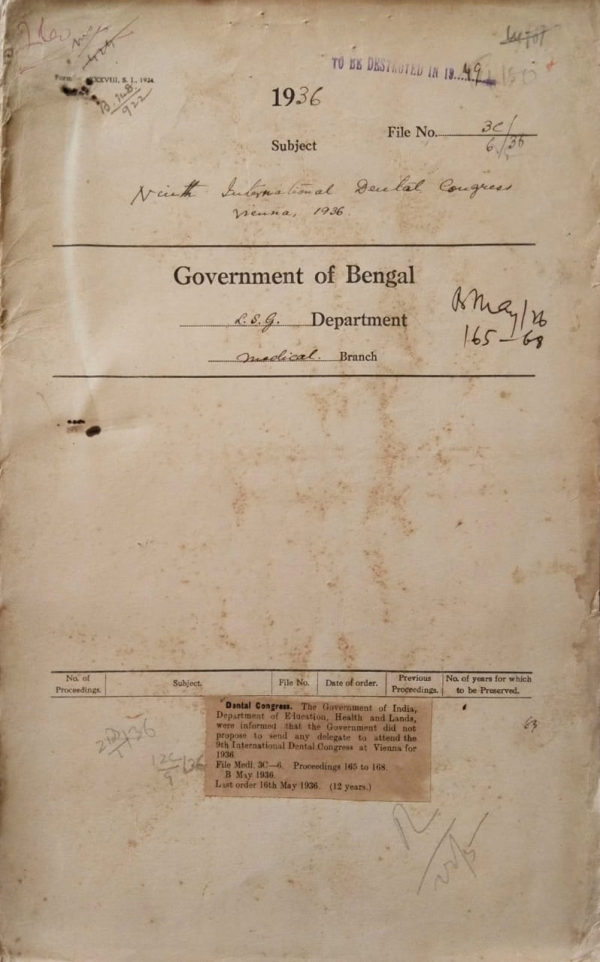 TO BE DESTROYED IN 19...49
XXXVIII, S. I., 1934.
B. MB
922
1936
File No. 3C/
6/36
Subject
Ninth International Dental Congress
Vienna, 1936.
Government of Bengal
L.S.G. Department
Medical Branch
B May/36
165-68
No. of Proceedings.
Subject.
File No.
Date of order.
Previous Proceedings.
No. of years for which to be Preserved.
Dental Congress. The Government of India,
Department of Education, Health and Lands,
were informed that the Government did not
propose to send any delegate to attend the
9th International Dental Congress at Vienna for
1936
File Medl. 3C—6. Proceedings 165 to 168.
B May 1936.
Last order 16th May 1936. (12 years.)